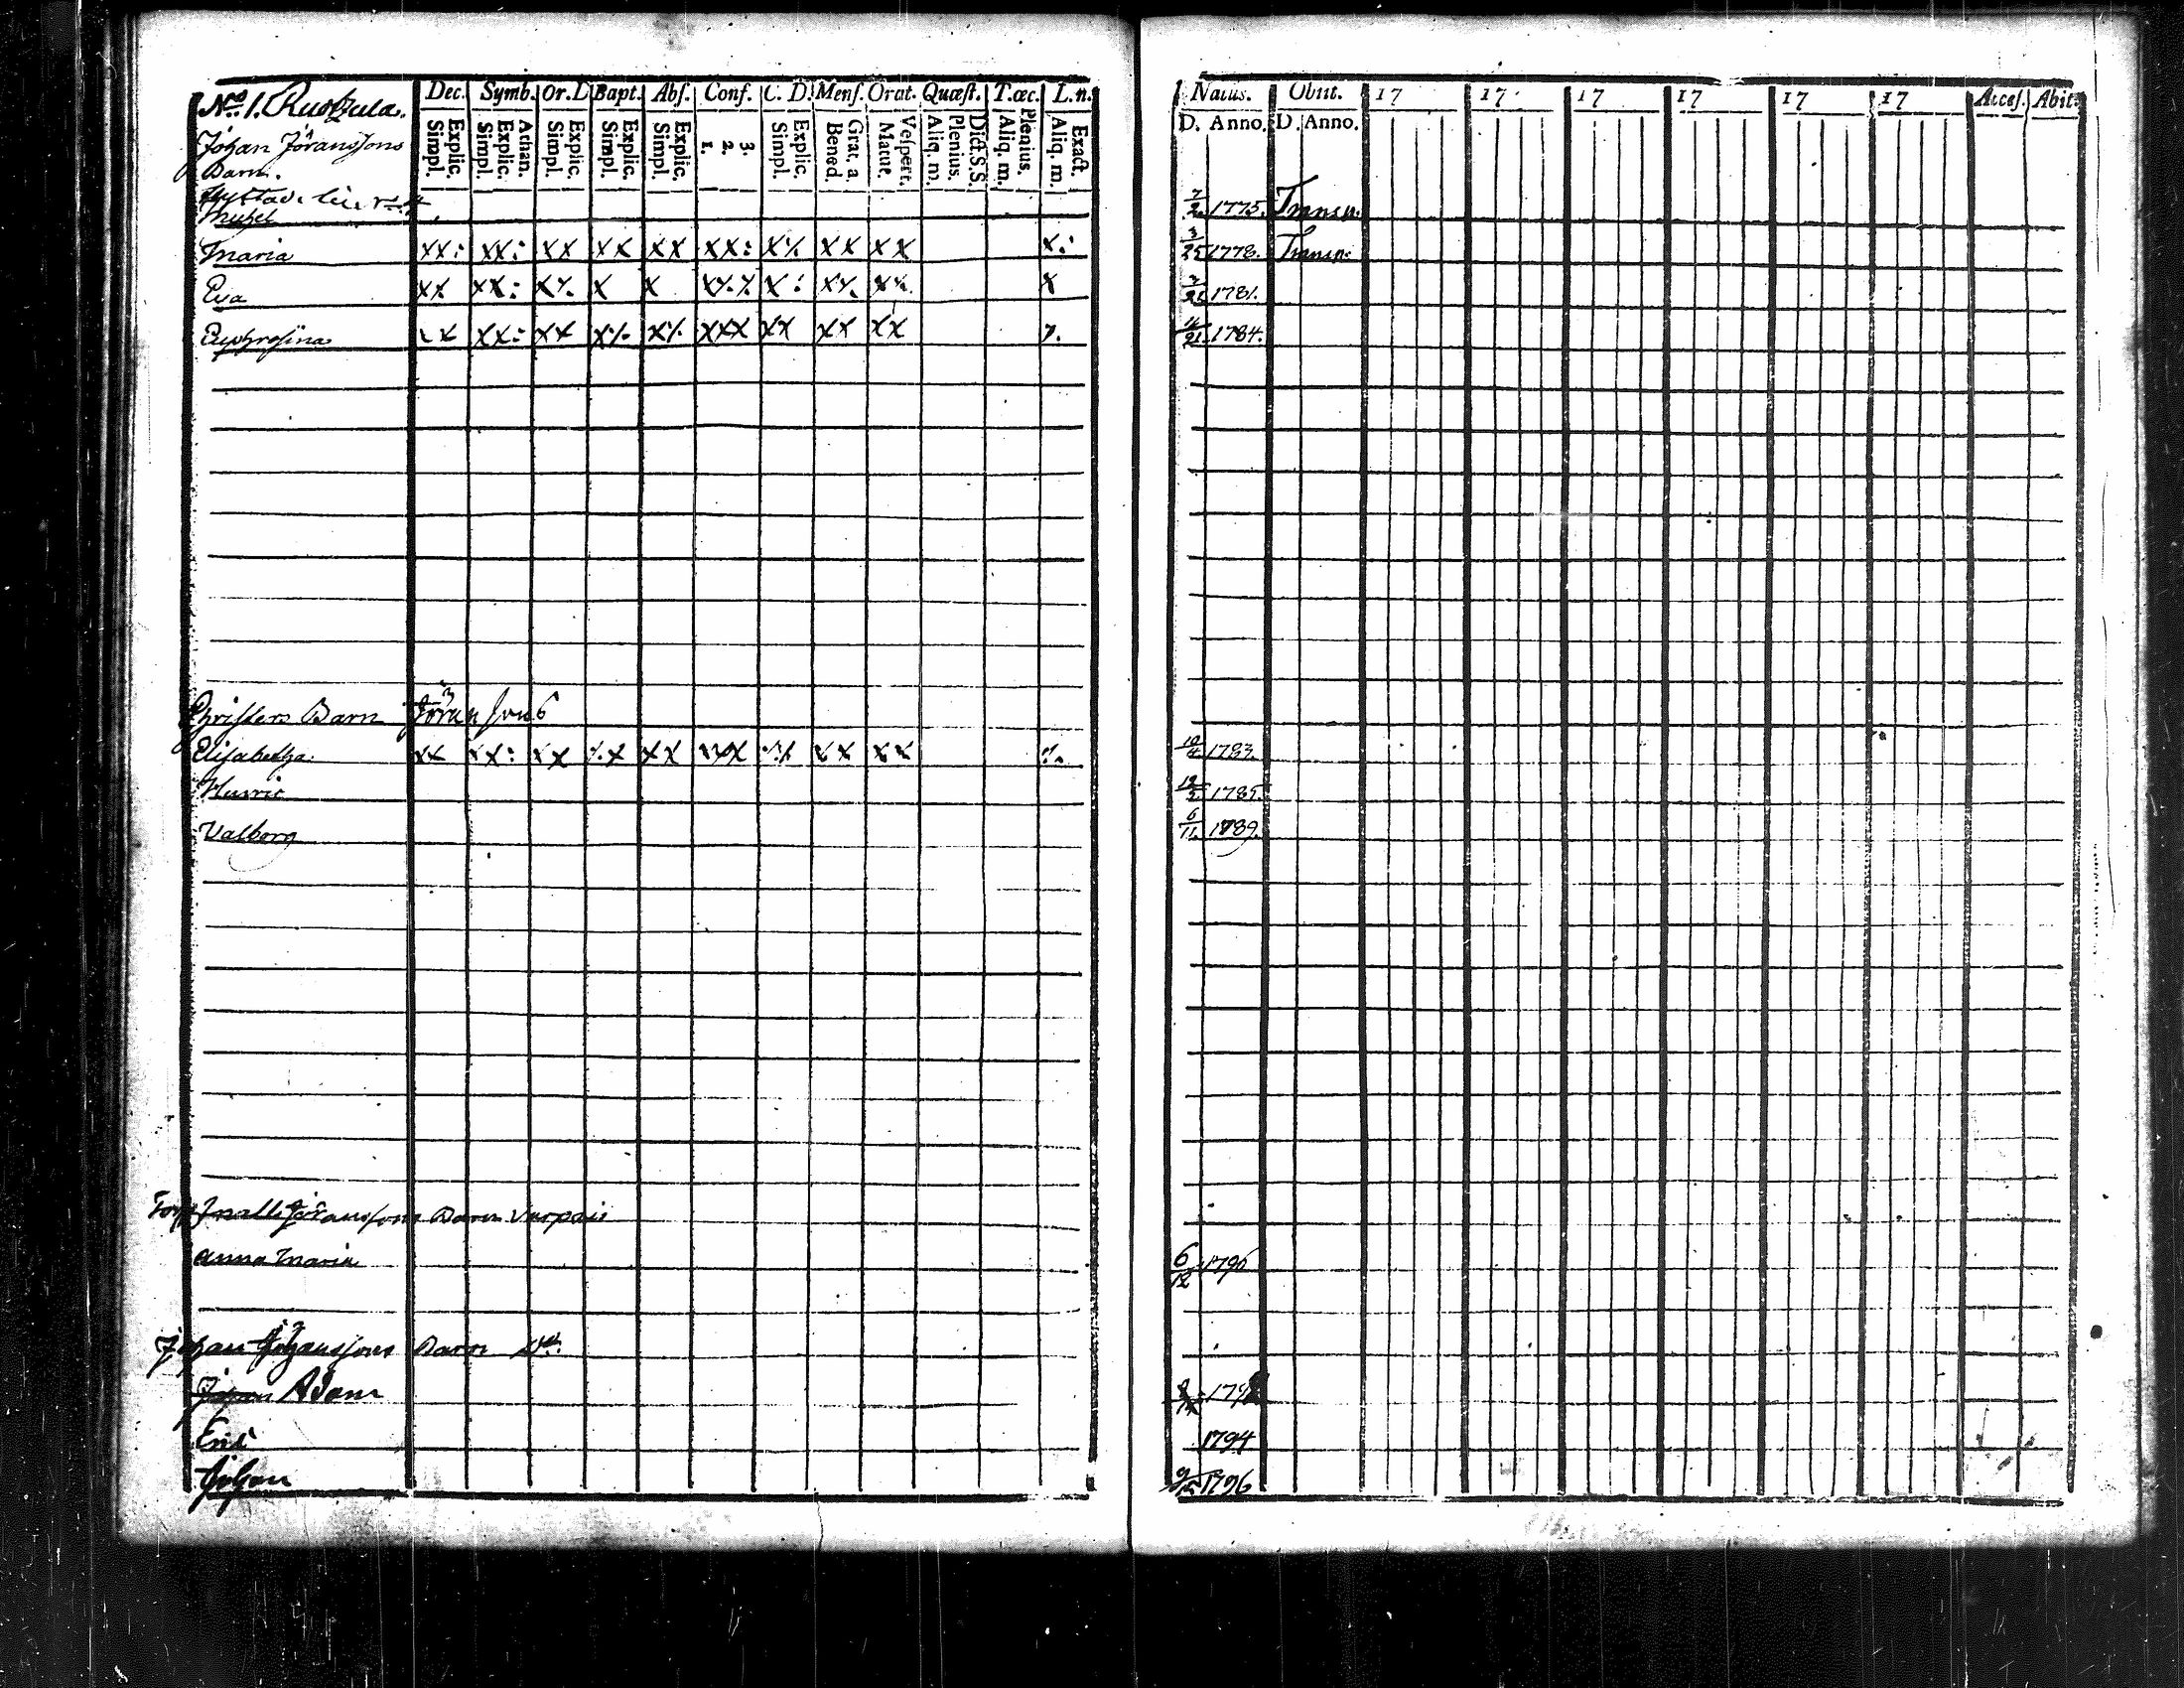 No. 1. Ruokula.
Dec. Symb. Or.D Bapt. Abs. Conf. C. D. Mens. Orat. Quæst. T.œc. L.n.
Explic. Simpl. Athan. Explic. Simpl. Explic. Simpl. Explic. Simpl. Explic. Simpl. 3. 2. 1. Explic. Simpl. Grat. a. Bened. Vespert. Matut. Dict.S.S. Plenius. Aliq. m. Plenius. Aliq. m. Exact. Aliq. m.
Natus. Obiit. 17 17 17 17 17 17 Acces. Abit.
D. Anno. D. Anno.
Johan Jöranssons
Barn.
Michel 7/2. 1775. Transp.
Maria xx: xx: xx xx xx xx: x% xx xx x: 3/25 1778. Transp.
Eva xx xx: x% x x x%% x: x% xx x 1781.
Euphrosina xx xx: xx x% x% xxx xx xx xx 1784.
Christers Barn Jöransons
Elisabetha xx xx: xx %x xx xxx %% xx xx %. 10/4 1783.
Henric 1785.
Valborg 6/11. 1789.
Matts Jöranssons Barn
Anna Maria 6/12 1796
Johan Johanssons Barn
Johan Adam
Eric 1794
Johan 1796